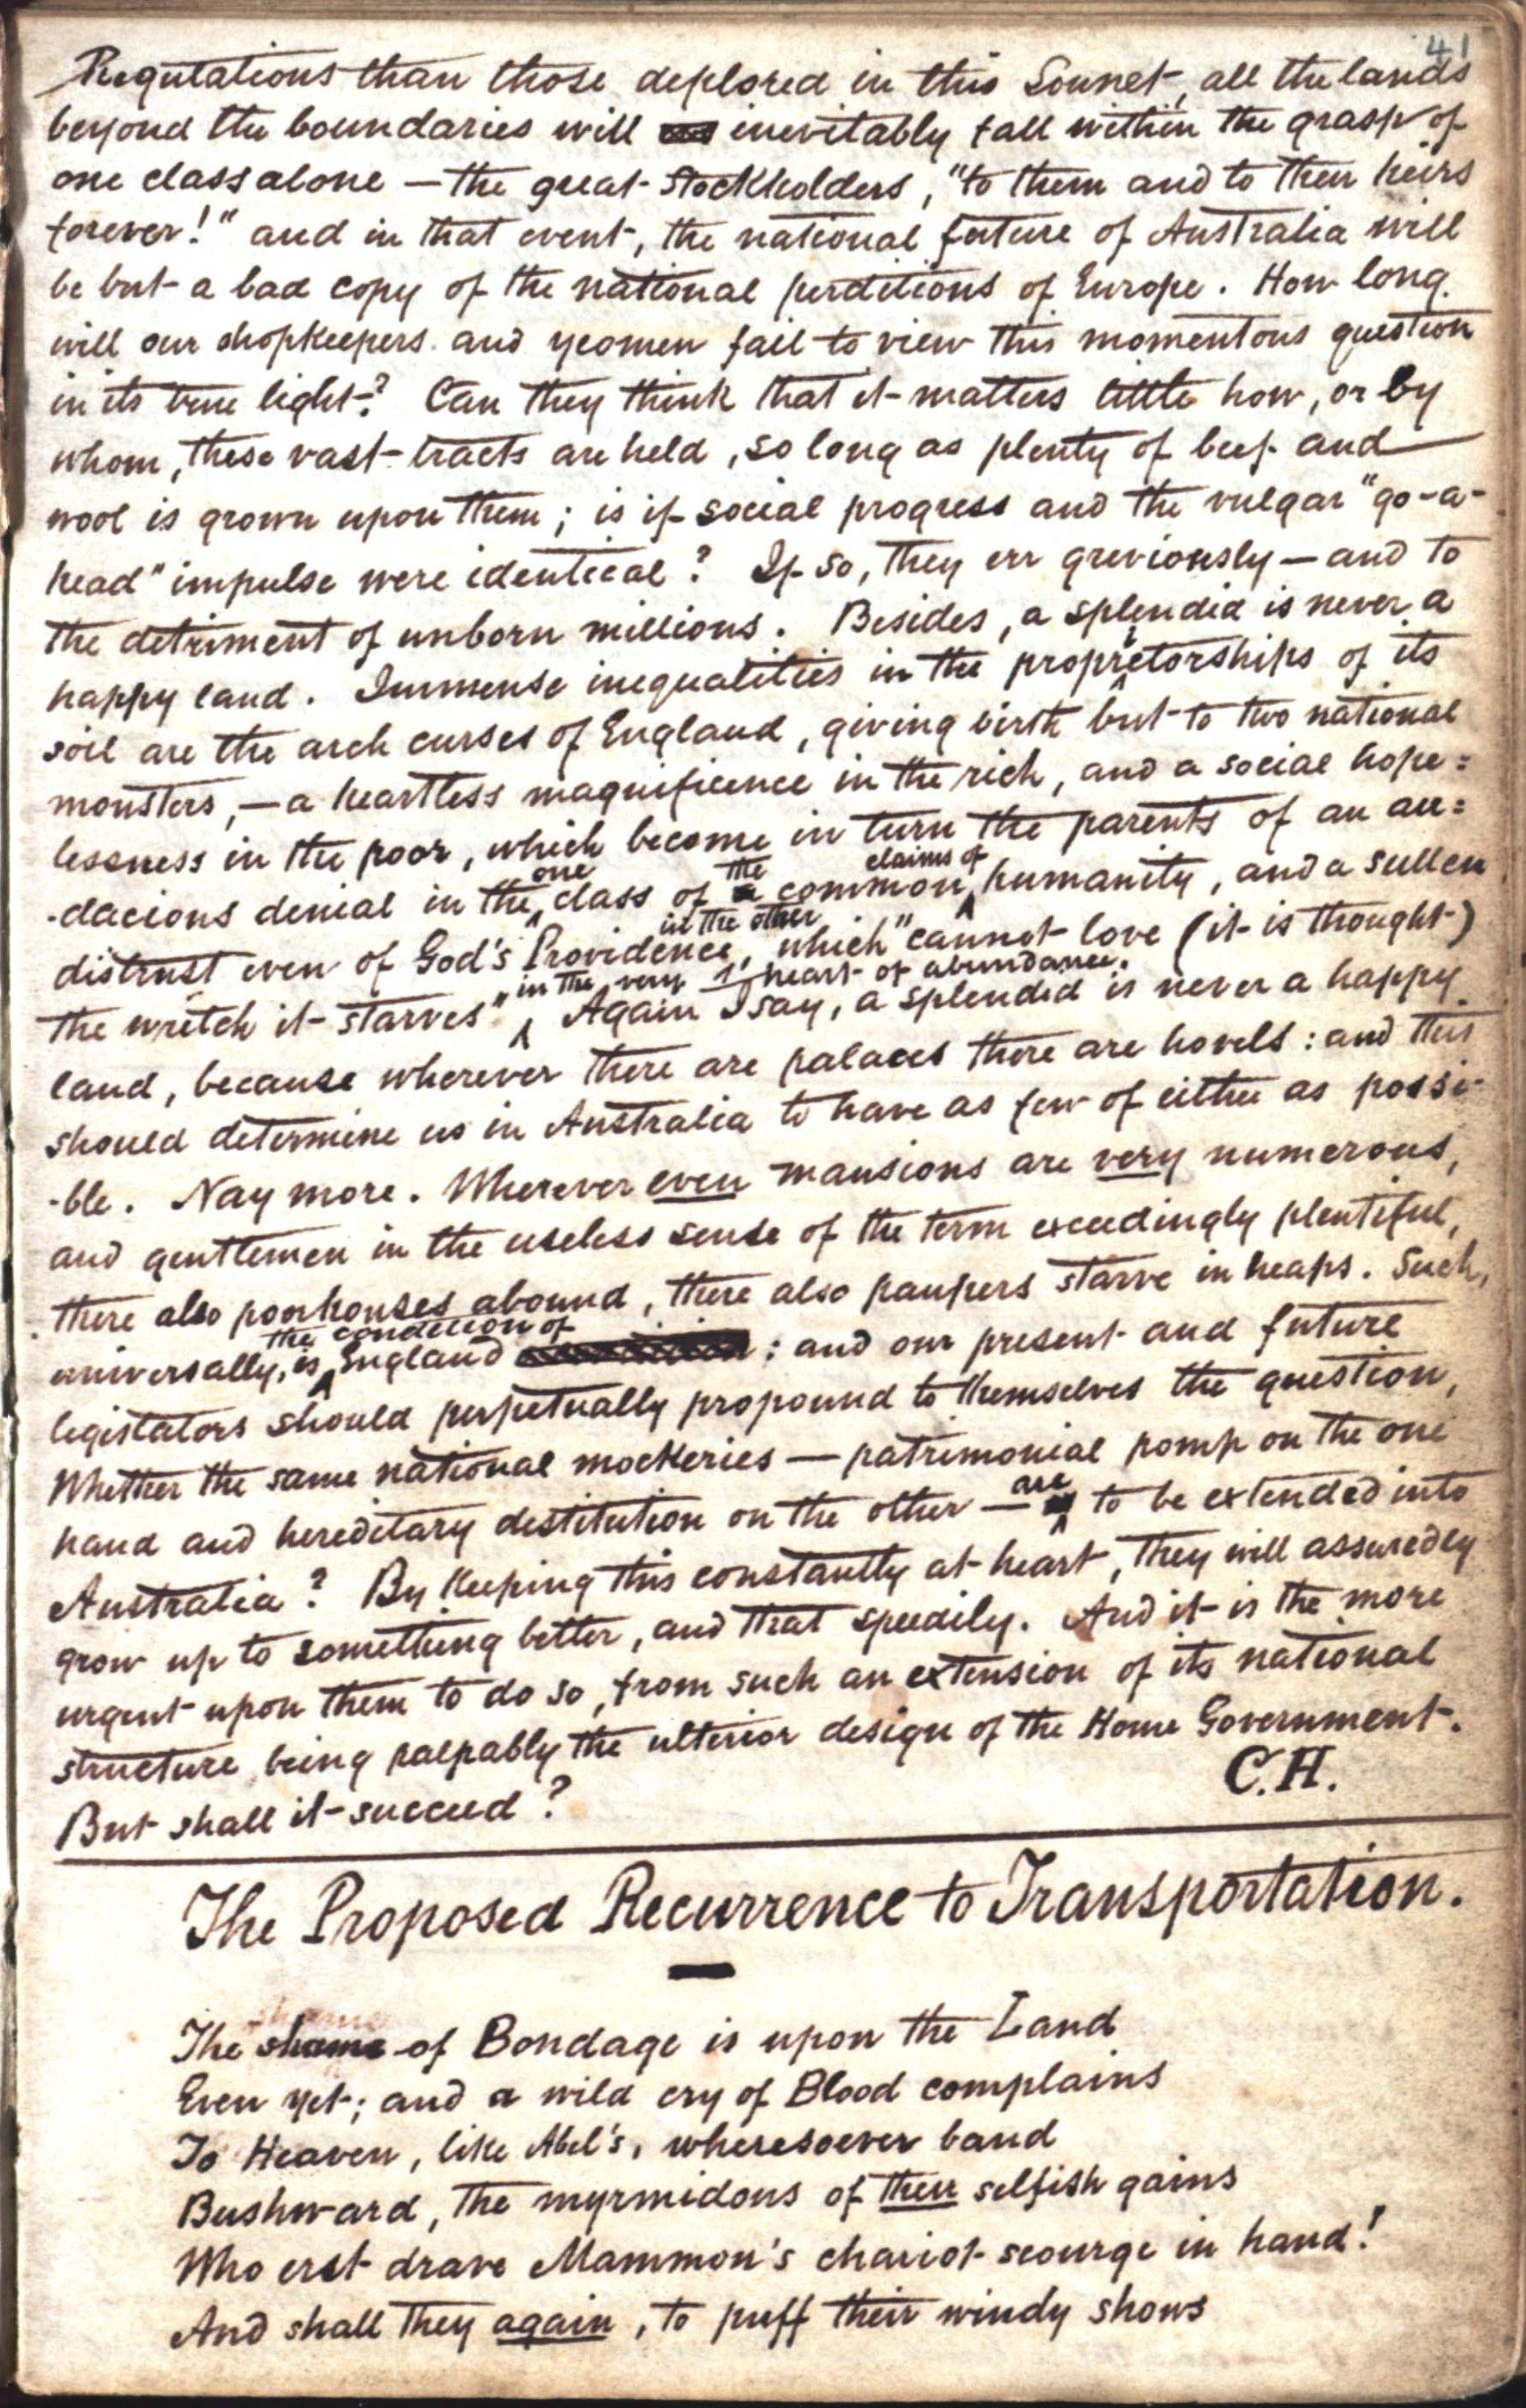 41
Regulations than those deplored in this Sonnet, all the lands
beyond the boundaries will inevitably fall within the grasp of
one class alone — the great Stockholders, "to them and to their heirs
forever!" and in that event, the national future of Australia will
be but a bad copy of the national perditions of Europe. How long
will our shopkeepers and yeomen fail to view this momentous question
in its true light? Can they think that it matters little how, or by
whom, these vast tracts are held, so long as plenty of beef and
wool is grown upon them; is if social progress and the vulgar "go-a-
head" impulse were identical? If so, they err greviously — and to
the detriment of unborn millions. Besides, a splendid is never a
happy land. Immense inequalities in the proprietorships of its
soil are the arch curses of England, giving birth but to two national
monsters, — a heartless magnificence in the rich, and a social hope=
lessness in the poor, which become in turn the parents of an au=
-dacious denial in the one class of the common claims of humanity, and a sullen
distrust even of God's Providence in the other, which "cannot love (it is thought)
the wretch it starves" in the very heart of abundance. Again I say, a splendid is never a happy
land, because wherever there are palaces there are hovels: and this
should determine us in Australia to have as few of either as possi-
-ble. Nay more. Wherever even mansions are very numerous,
and gentlemen in the useless sense of the term exceedingly plentiful,
there also poorhouses abound, there also paupers starve in heaps. Such,
universally, is the condition of England: and our present and future
legistators should perpetually propound to themselves the question,
Whether the same national mockeries — patrimonial pomp on the one
hand and hereditary destitution on the other — are to be extended into
Australia? By Keeping this constantly at heart, they will assuredly
grow up to something better, and that speedily. And it is the more
urgent upon them to do so, from such an extension of its national
structure being palpably the ulterior design of the Home Government.
But shall it succeed?
C.H.
The Proposed Recurrence to Transportation.
The shame of Bondage is upon the Land
Even yet; and a wild cry of Blood complains
To Heaven, like Abel's, wheresoever band
Bushward, the myrmidons of their selfish gains
Who erst drave Mammon's chariot scourge in hand!
And shall they again, to puff their windy shows